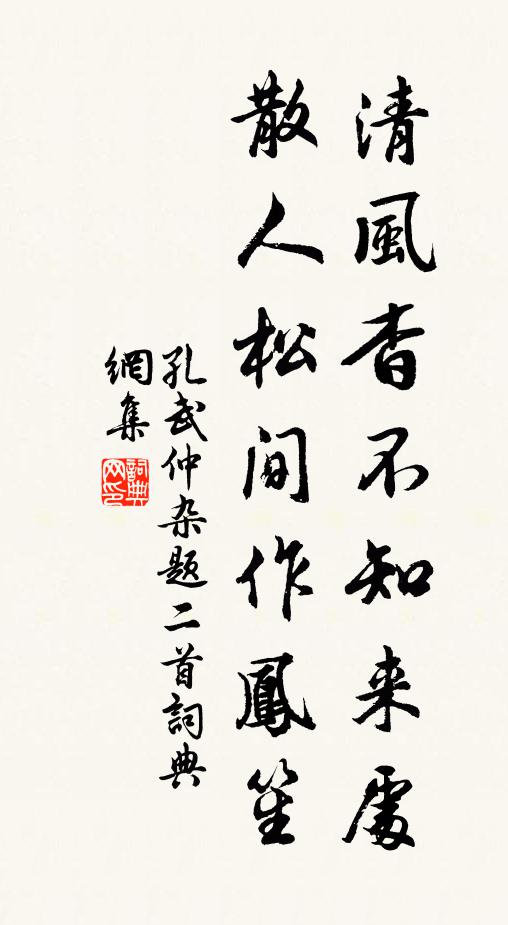 清風杳不知来處
散人松間作鳳笙
孔武仲杂题二首詞典
網集
詞典网印